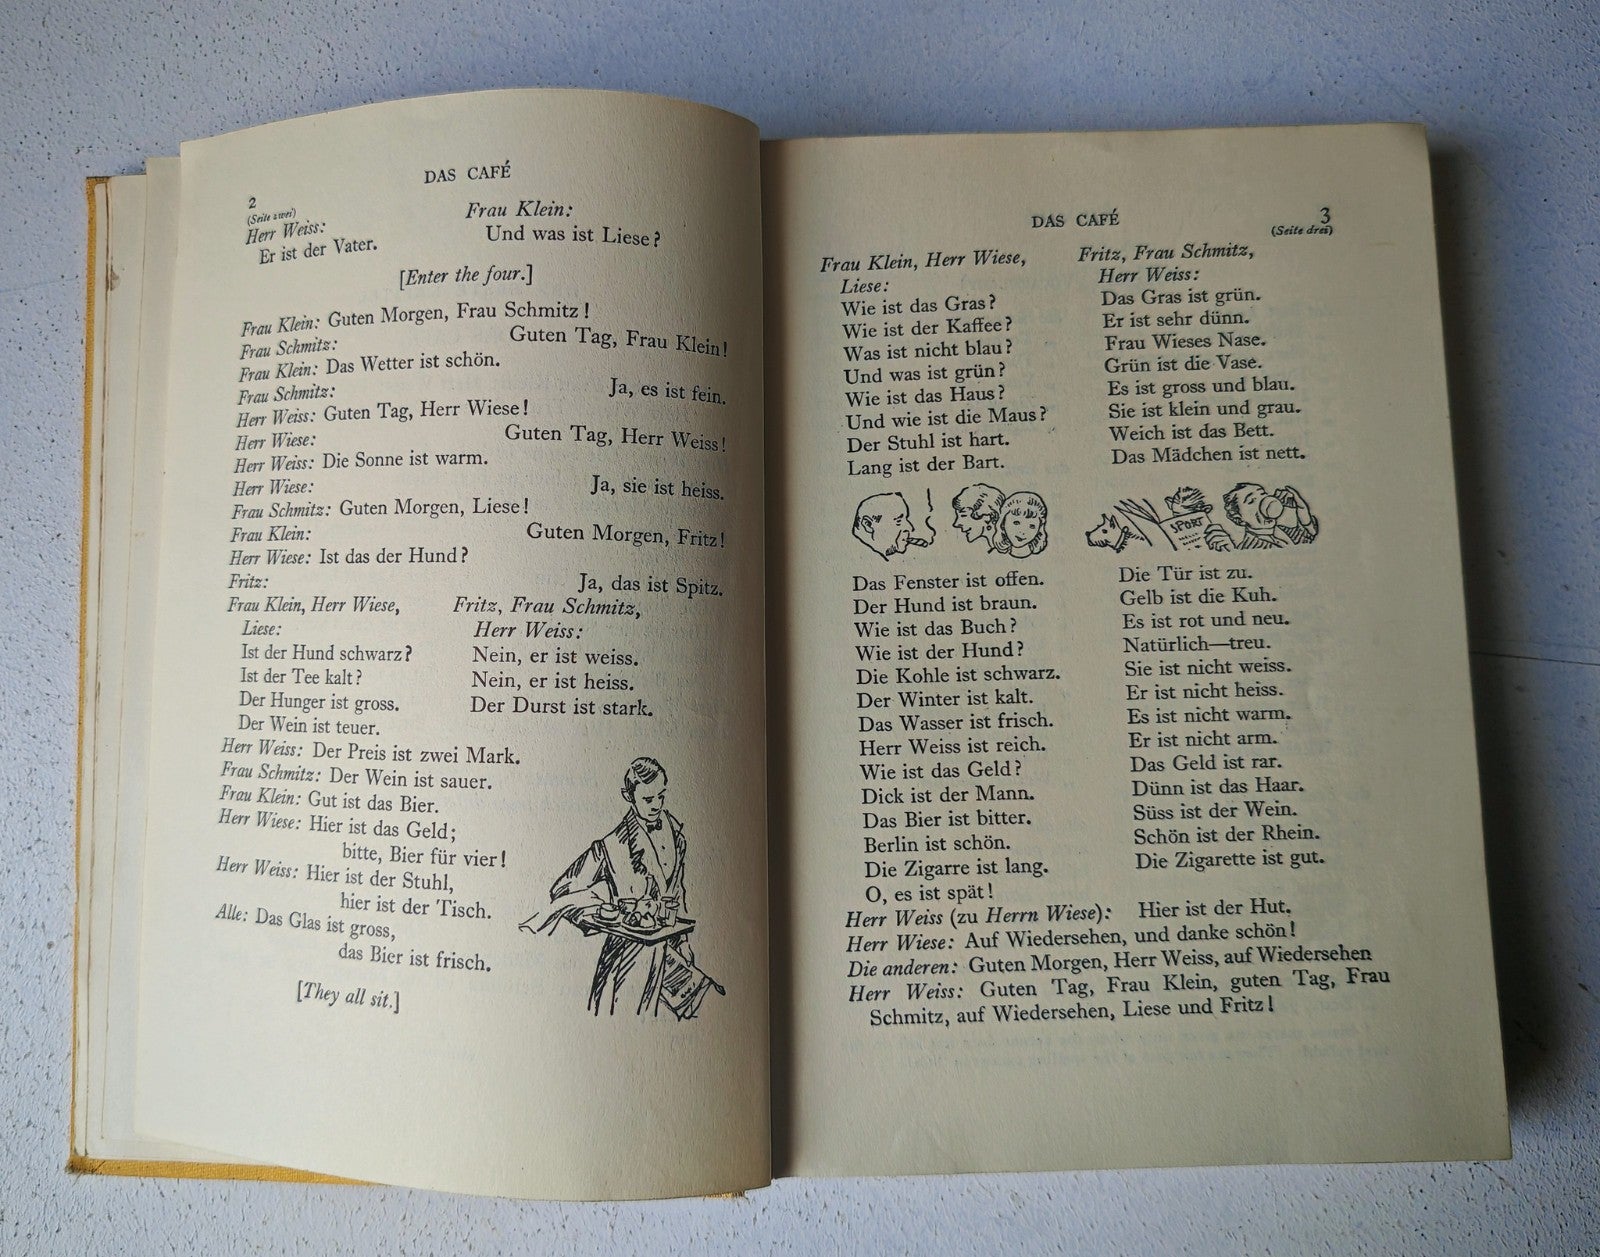 DAS CAFÉ
2
(Seite zwei)
Herr Weiss: Frau Klein:
Er ist der Vater. Und was ist Liese?
[Enter the four.]
Frau Klein: Guten Morgen, Frau Schmitz!
Frau Schmitz: Guten Tag, Frau Klein!
Frau Klein: Das Wetter ist schön.
Frau Schmitz: Ja, es ist fein.
Herr Weiss: Guten Tag, Herr Wiese!
Herr Wiese: Guten Tag, Herr Weiss!
Herr Weiss: Die Sonne ist warm.
Herr Wiese: Ja, sie ist heiss.
Frau Schmitz: Guten Morgen, Liese!
Frau Klein: Guten Morgen, Fritz!
Herr Wiese: Ist das der Hund?
Fritz: Ja, das ist Spitz.
Frau Klein, Herr Wiese, Fritz, Frau Schmitz,
Liese: Herr Weiss:
Ist der Hund schwarz? Nein, er ist weiss.
Ist der Tee kalt? Nein, er ist heiss.
Der Hunger ist gross. Der Durst ist stark.
Der Wein ist teuer.
Herr Weiss: Der Preis ist zwei Mark.
Frau Schmitz: Der Wein ist sauer.
Frau Klein: Gut ist das Bier.
Herr Wiese: Hier ist das Geld;
bitte, Bier für vier!
Herr Weiss: Hier ist der Stuhl,
hier ist der Tisch.
Alle: Das Glas ist gross,
das Bier ist frisch.
[They all sit.]
DAS CAFÉ 3
(Seite drei)
Frau Klein, Herr Wiese, Fritz, Frau Schmitz,
Liese: Herr Weiss:
Wie ist das Gras? Das Gras ist grün.
Wie ist der Kaffee? Er ist sehr dünn.
Was ist nicht blau? Frau Wieses Nase.
Und was ist grün? Grün ist die Vase.
Wie ist das Haus? Es ist gross und blau.
Und wie ist die Maus? Sie ist klein und grau.
Der Stuhl ist hart. Weich ist das Bett.
Lang ist der Bart. Das Mädchen ist nett.
SPORT
Das Fenster ist offen. Die Tür ist zu.
Der Hund ist braun. Gelb ist die Kuh.
Wie ist das Buch? Es ist rot und neu.
Wie ist der Hund? Natürlich—treu.
Die Kohle ist schwarz. Sie ist nicht weiss.
Der Winter ist kalt. Er ist nicht heiss.
Das Wasser ist frisch. Es ist nicht warm.
Herr Weiss ist reich. Er ist nicht arm.
Wie ist das Geld? Das Geld ist rar.
Dick ist der Mann. Dünn ist das Haar.
Das Bier ist bitter. Süss ist der Wein.
Berlin ist schön. Schön ist der Rhein.
Die Zigarre ist lang. Die Zigarette ist gut.
O, es ist spät!
Herr Weiss (zu Herrn Wiese): Hier ist der Hut.
Herr Wiese: Auf Wiedersehen, und danke schön!
Die anderen: Guten Morgen, Herr Weiss, auf Wiedersehen
Herr Weiss: Guten Tag, Frau Klein, guten Tag, Frau
Schmitz, auf Wiedersehen, Liese und Fritz!